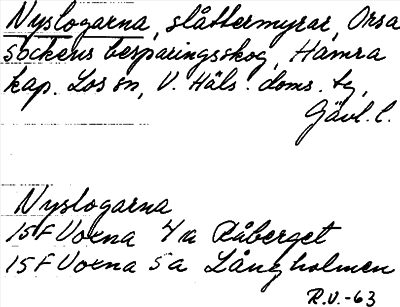 Nyslogarna, slåttermyrar, Orsa
sockens besparingsskog, Hamra
kap. Los sn, V. Häls. doms. tg,
Gävl. l.
Nyslogarna
15F Voxna 4a Råberget
15F Voxna 5a Långholmen
R.V.-63